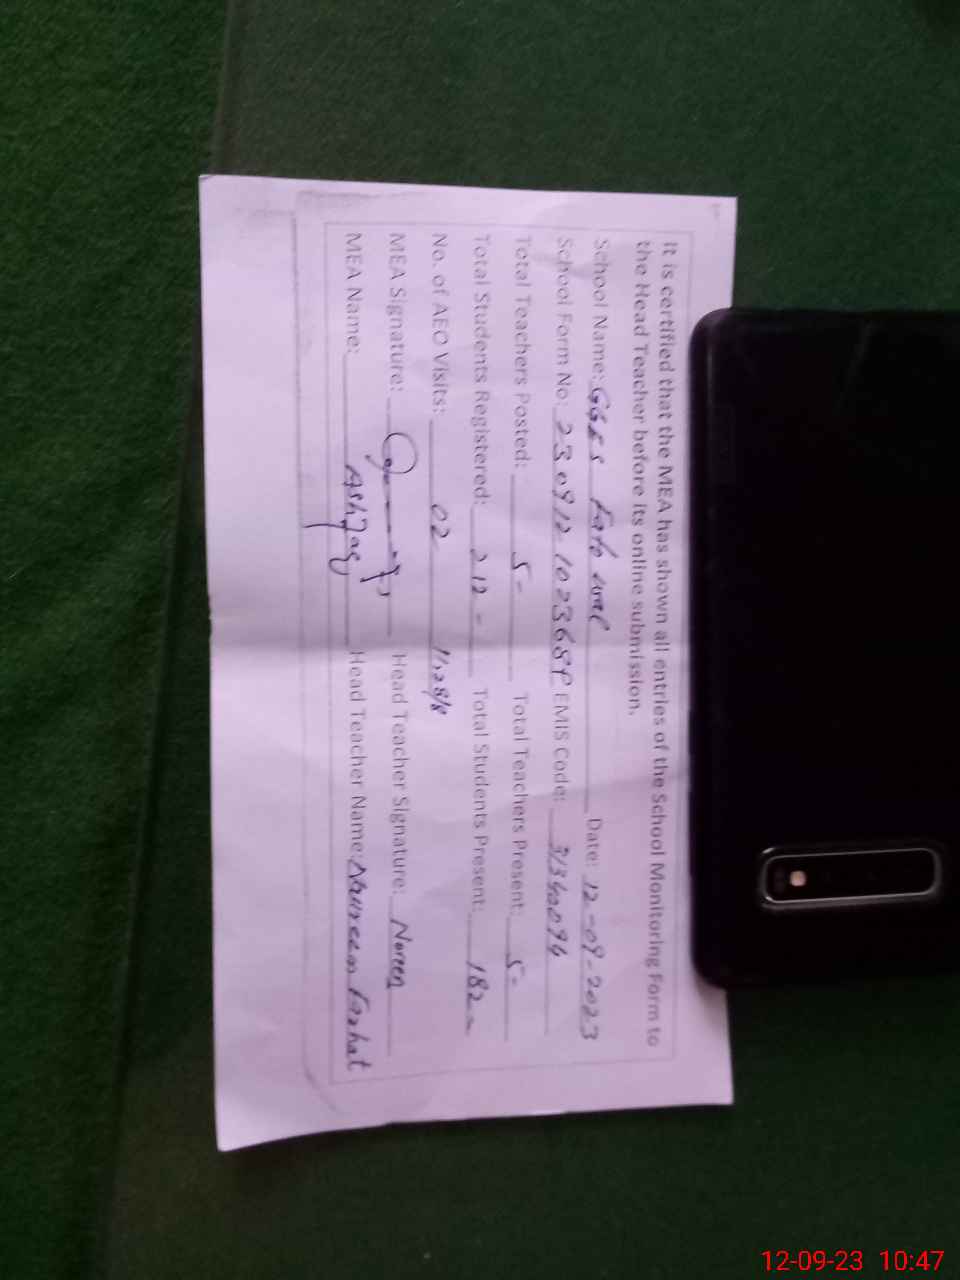 It is certified that the MEA has shown all entries of the School Monitoring Form to
the Head Teacher before its online submission.
School Name: GGES Date: 12-09-2023
School Form No: EMIS Code:
Total Teachers Posted: 5- Total Teachers Present: 5-
Total Students Registered: 212- Total Students Present: 182
No. of AEO Visits: 02
MEA Signature: Head Teacher Signature: Noreen
MEA Name: Ashfaq Head Teacher Name: Naureen Farhat
12-09-23 10:47